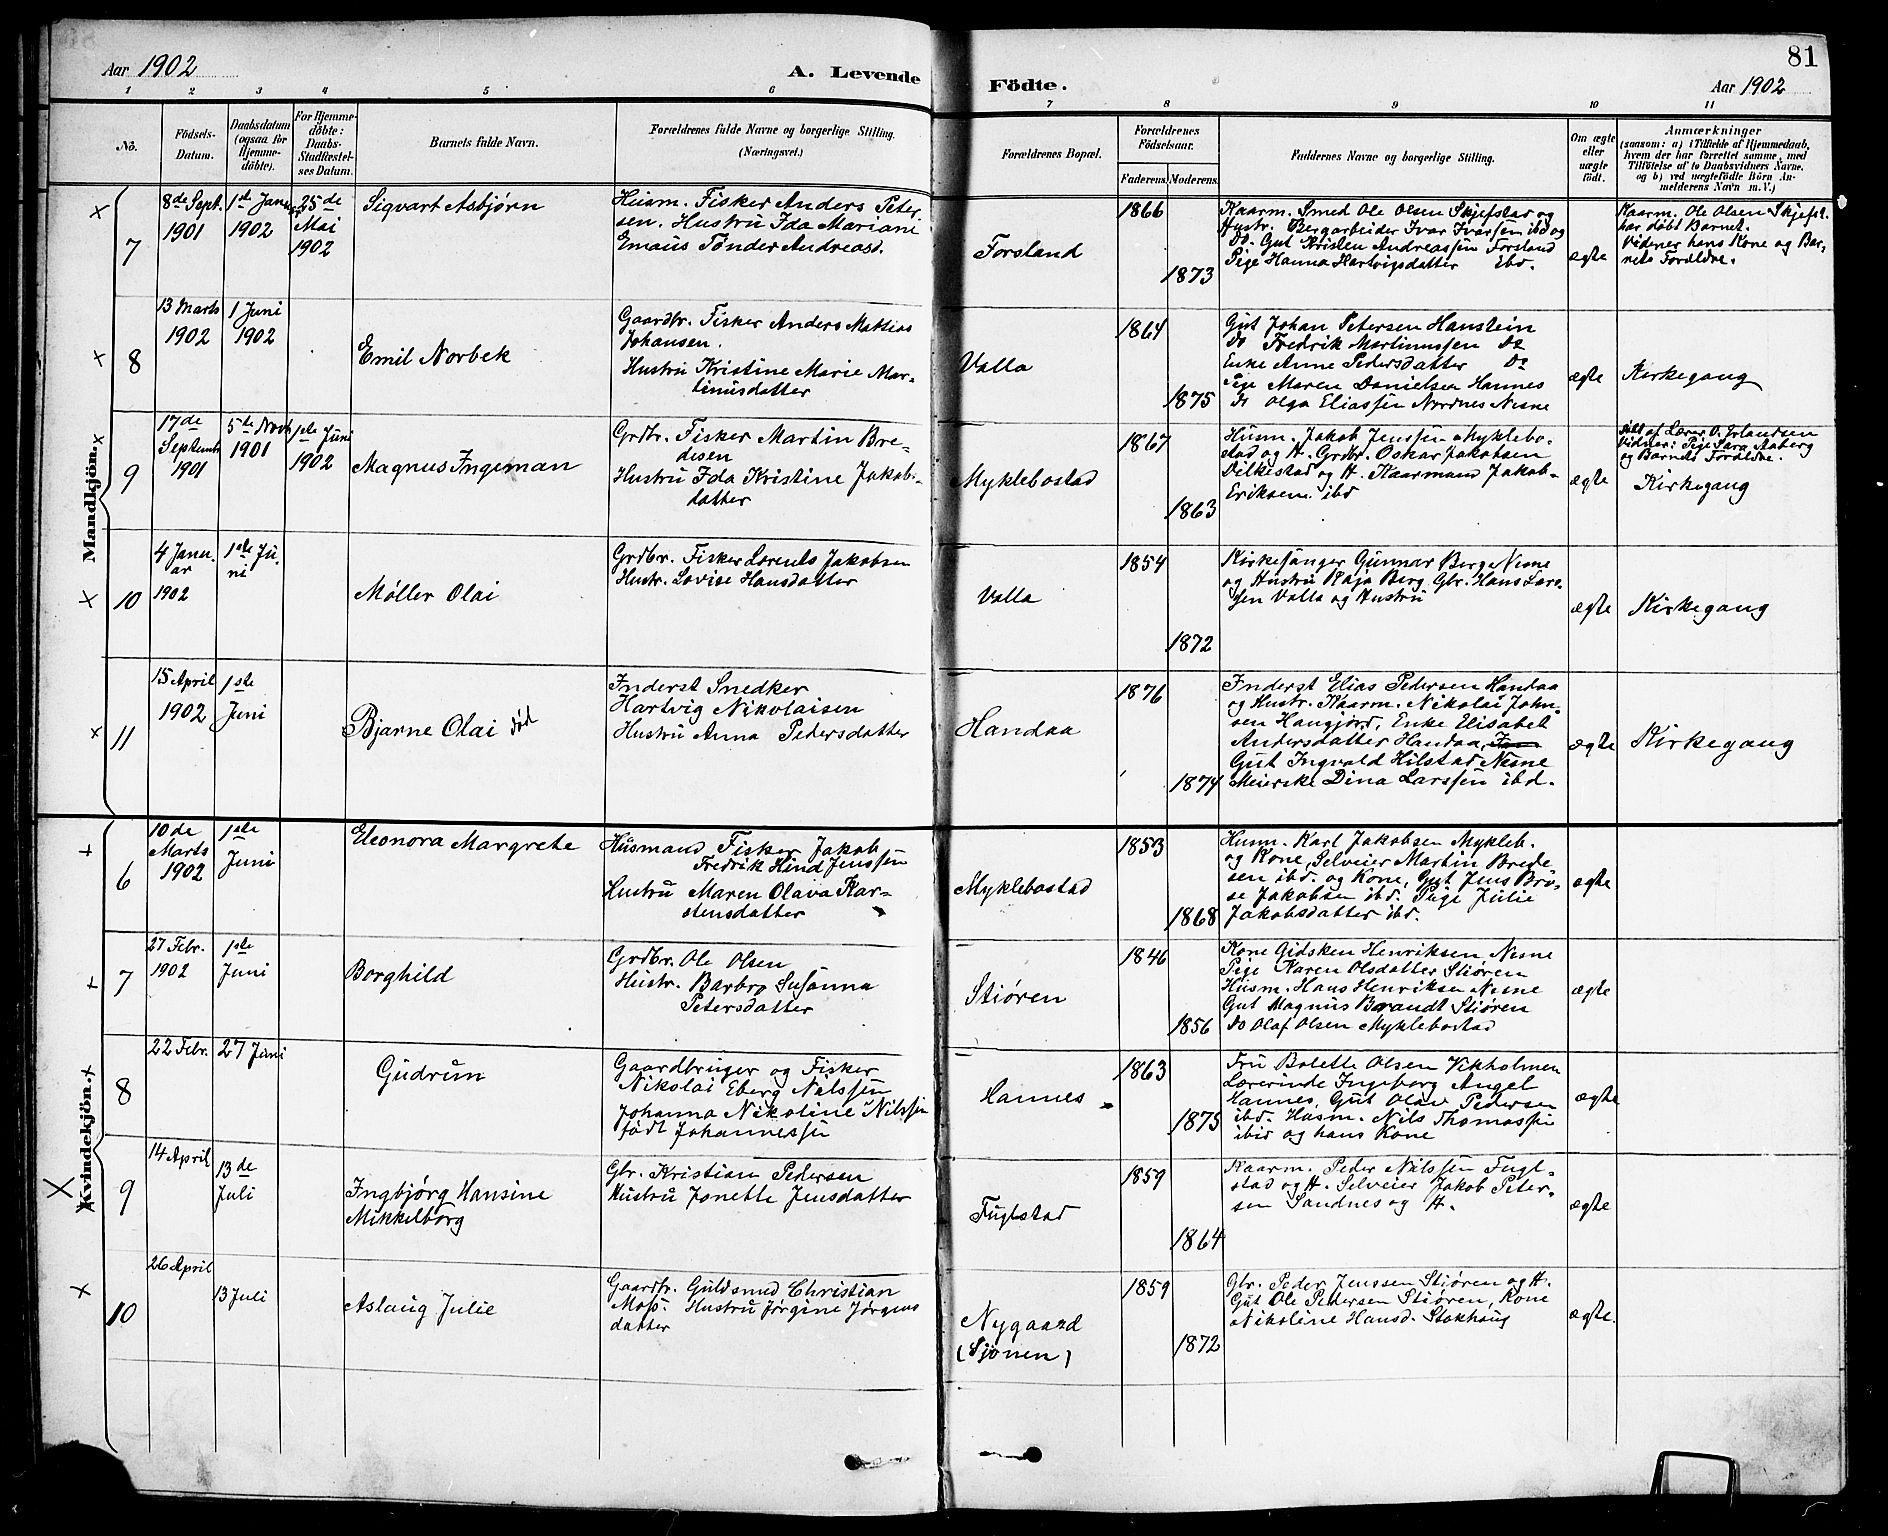 Aar 1902
A. Levende
Födte.
81
Aar 1902
1 2 3 4 5 6 7 8 9 10 11
No.
Födsels-
Datum.
Daabsdatum
(ogsaa for
Hjemme-
döbte).
For Hjemme-
döbte:
Daabs-
Stadfæstel-
ses Datum.
Barnets fulde Navn.
Forældrenes fulde Navne og borgerlige Stilling.
(Næringsvei.)
Forældrenes Bopæl.
Forældrenes
Födselsaar.
Faderens. Moderens.
Faddernes Navne og borgerlige Stilling.
Om ægte
eller
uægte
födt.
Anmærkninger
(saasom: a) i Tilfælde af Hjemmedaab,
hvem der har forrettet samme, med
Tilföielse af to Daabsvidners Navne,
og b) ved uægtefödte Börn An-
melderens Navn m. V.)
Mandkjön.
7
8de Sept.
1901
1st Januar
1902
25de
Mai
1902
Sigvart Asbjørn
Husm. Fisker Anders Peter-
sen. Hustru Ida Mariane
Emaus Tønder Andreasd.
Forsland
1866
1873
Kaarm. Smed Ole Olsen Skjefstad og
Hustr. Bergarbeider Ivar Ivarsen ibd og
Do. Gut Kristen Andreassen Forsland
Pige Hanna Hartvigsdatter ibd.
ægte
Kaarm. Ole Olsen Skjefst.
har døbt Barnet.
Vidner hans Kone og Bar-
nets Forældre.
8
13 Marts
1902
1 Juni
1902
Emil Norbek
Gaardbr. Fisker Anders Mattias
Johansen.
Hustru Kristine Marie Mar-
tinusdatter
Valla
1864
1875
Gut Johan Petersen Hanstein
Do Fredrik Martinussen Do
Enke Anne Pedersdatter Do
Pige Maren Danielsen Hannes
Do Olga Eliassen Nordnes Nesne
ægte
Kirkegang
9
17de
Septemb
1901
5te Novb
1901
1ste Juni
1902
Magnus Ingeman
Grdbr. Fisker Martin Bre-
desen
Hustru Ida Kristine Jakobs-
datter
Myklebostad
1867
1863
Husm. Jakob Jenssen Myklebo-
stad og H. Grdbr. Oskar Jakobsen
Dilkestad og H. Kaarmand Jakob
Eriksen ibd
ægte
døbt af Lærer O. Erlandsen
Vidner: Pige Sara Aaberg
og Barnets Forældre.
Kirkegang
10
4 Janu-
ar
1902
1ste Ju-
ni
Møller Olai
Grdbr. Fisker Lorents Jakobsen
Hustr. Lovise Hansdatter
Valla
1854
1872
Kirkesanger Gunnar Berg Nesne
og Hustru Kaja Berg Gbr. Hans Lars-
sen Valla og Hustru
ægte
Kirkegang
11
15 April
1902
1ste
Juni
Bjarne Olai død
Inderst Snedker
Hartvig Nikolaisen
Hustru Anna Pedersdatter
Handaa
1876
1874
Inderst Elias Pedersen Handaa
og Hustr. Kaarm. Nikolai John-
sen Hangjord, Enke Elisabet
Andersdatter Handaa,
Gut Ingvald Hilstad Nesne
Meierske Dina Larssen ibd.
ægte
Kirkegang
Kvindekjön.
6
10de
Marts
1902
1ste
Juni
Eleonora Margrete
Husmand Fisker Jakob
Fredrik Hind Jenssen
Hustru Maren Olava Kar-
stensdatter
Myklebostad
1853
1868
Husm. Karl Jakobsen Mykleb.
og Kone, Selveier Martin Brede
sen ibd. og Kone, Gut Jens Brø-
se Jakobsen ibd. Pige Julie
Jakobsdatter ibd.
ægte
7
27 Febr.
1902
1ste
Juni
Borghild
Grdbr. Ole Olsen
Hustr. Barbro Susanna
Petersdatter
Stiøren
1846
1856
Kone Gidsken Henriksen Nesne
Pige Karen Olsdatter Stiøren
Husm. Hans Henriksen Nesne
Gut Magnus Brandt Stiøren
Do Olaf Olsen Myklebostad
ægte
8
22 Febr.
27 Juni
Gudrun
Gaardbruger og Fisker
Nikolai Eberg Nilssen
Johanna Nikoline Nilssen
født Johannessen
Hannes
1863
1875
Fru Bolette Olsen Vikholmen
Lærerinde Ingeborg Angel
Hannes, Gut Olav Pedersen
ibd. Husm. Nils Thomassen
ibid og hans Kone
ægte
9
14 April
13de
Juli
Ingbjørg Hansine
Mikkelborg
Gbr. Kristian Pedersen
Hustru Jonette Jensdatter
Fuglstad
1859
1864
Kaarm. Peder Nilssen Fugl-
stad og H. Selveier Jakob Peter-
sen Sandnes og H.
ægte
10
26 April
13 Juli
Aslaug Julie
Gaardbr. Guldsmed Christian
Moss. Hustru Jørgine Jørgens
datter
Nygaard
(Sjonen)
1859
1872
Gbr. Peder Jenssen Stiøren og H.
Gut Ole Pedersen Stiøren, Kone
Nikoline Hansd. Stokhaug
ægte.